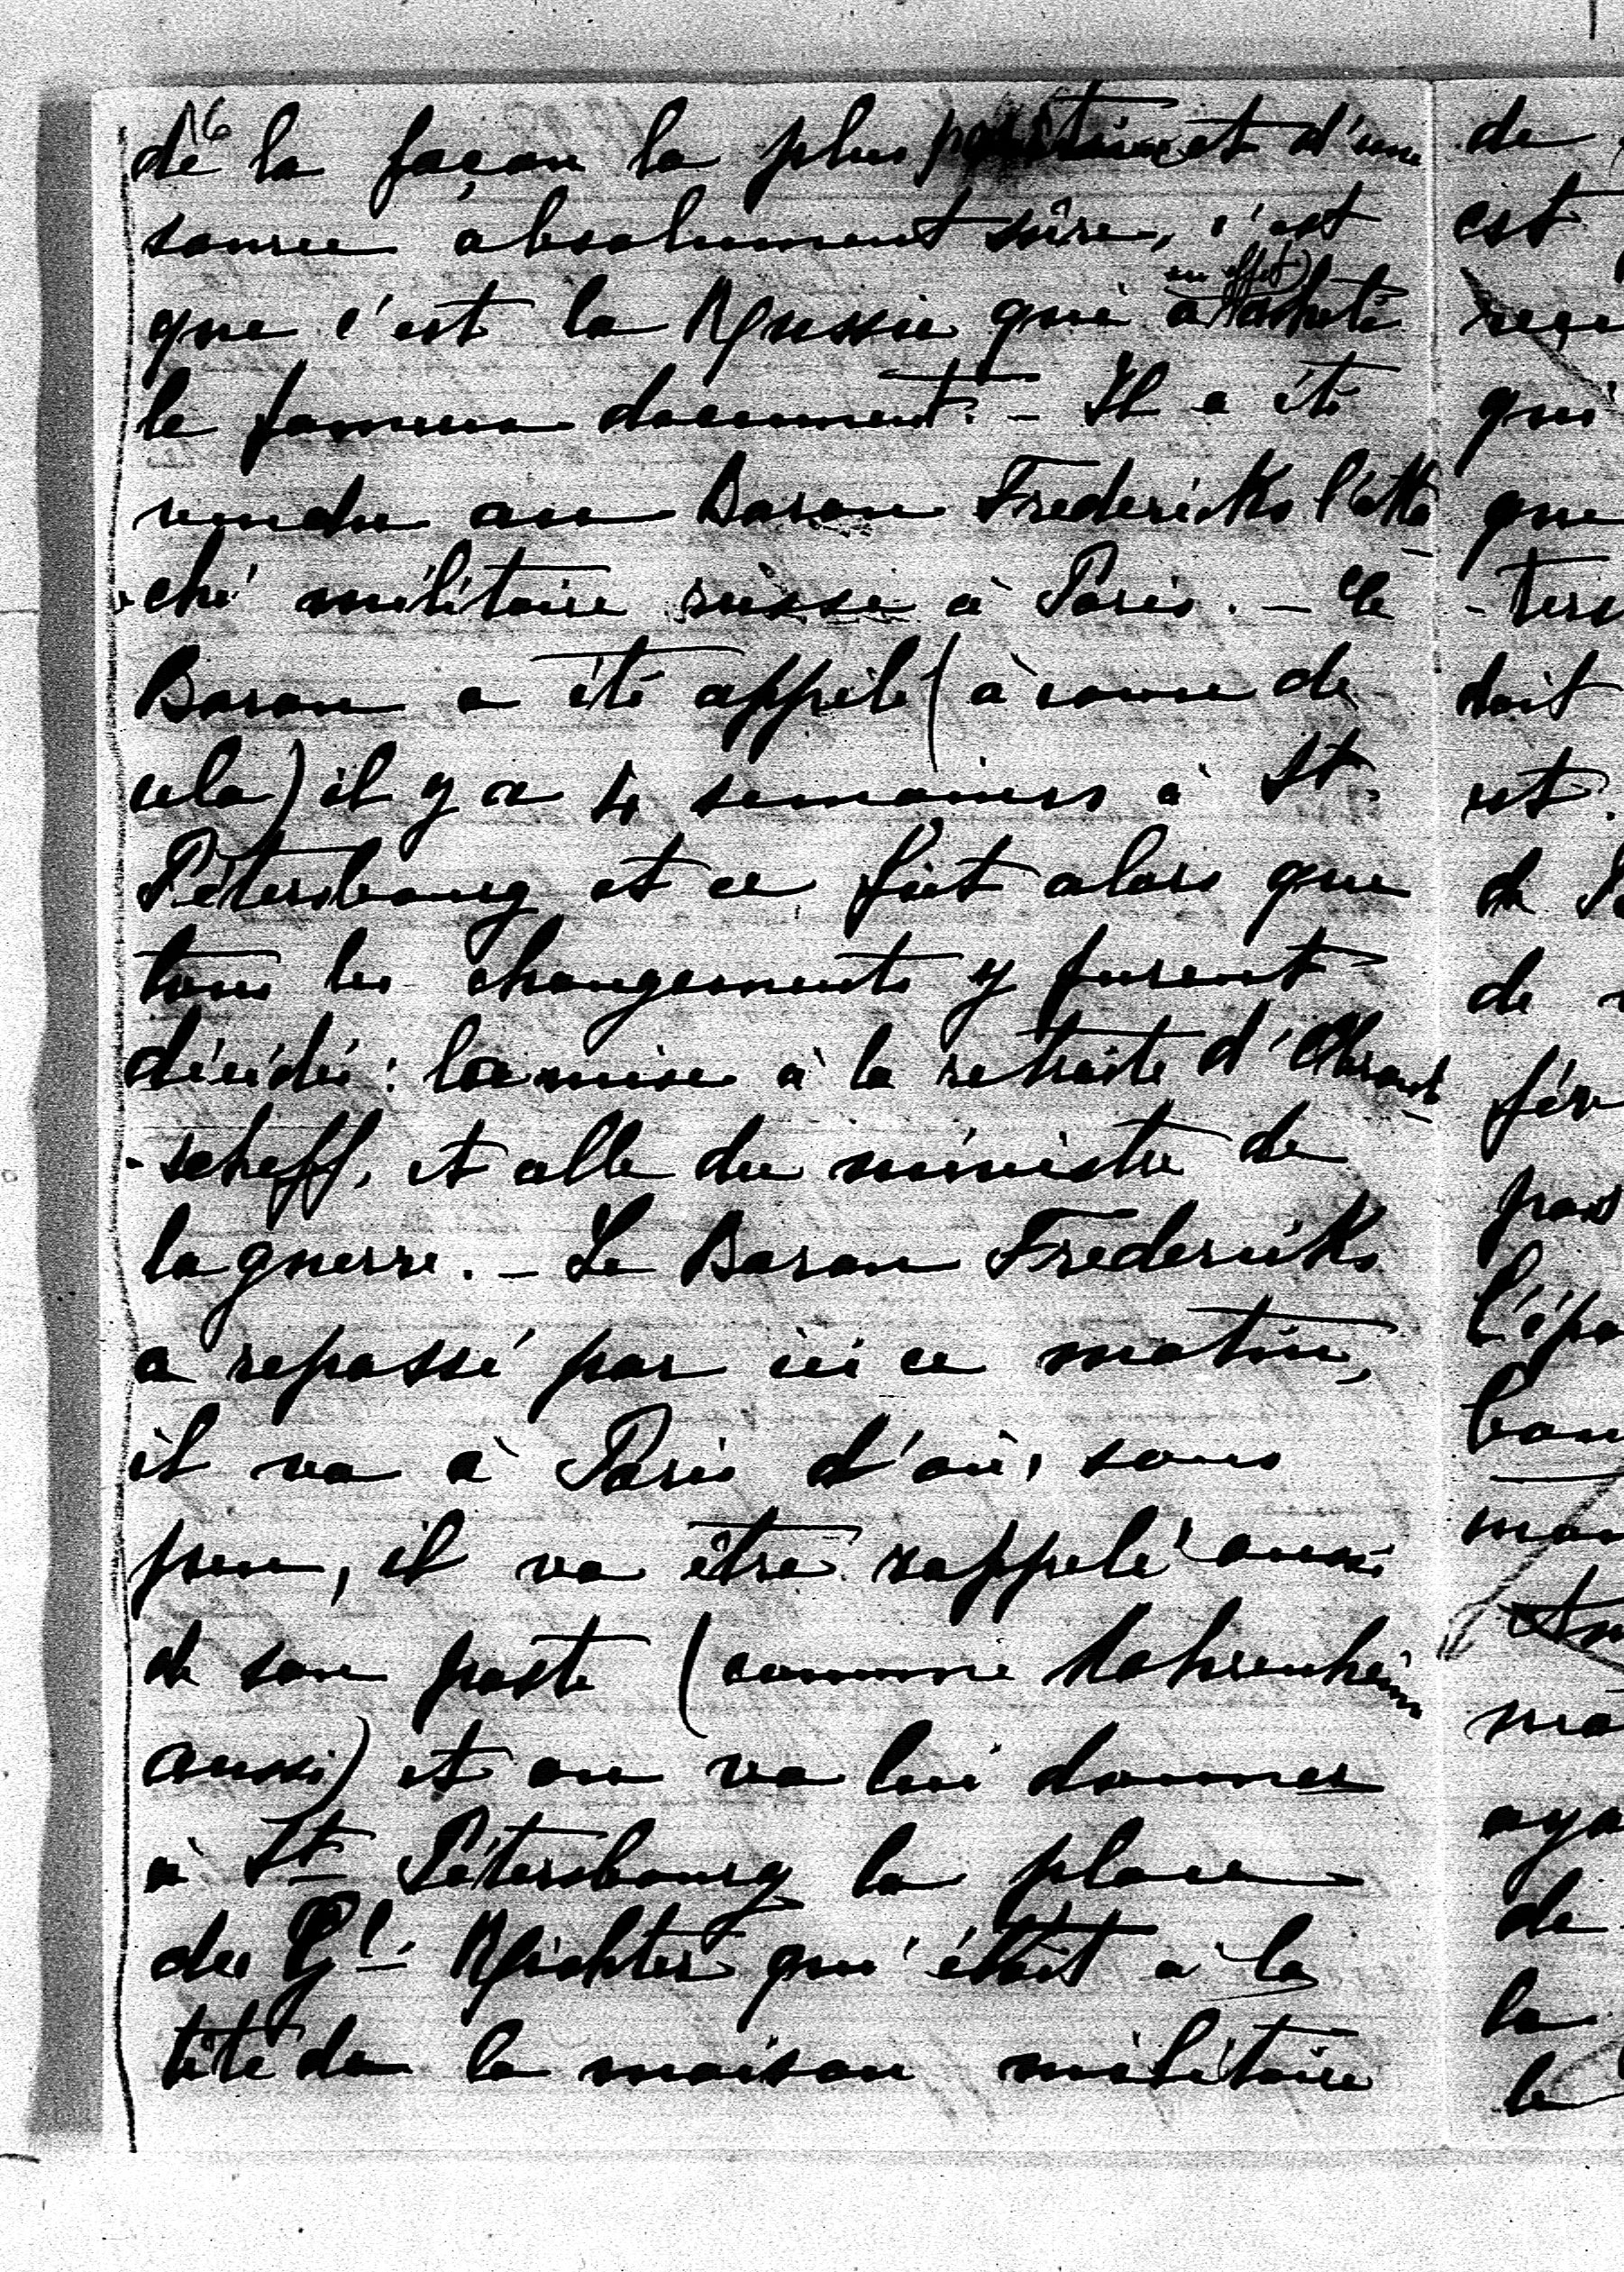 16
de la façon la plus positive et d'une
source absolument sûre, c'est
en effet)
que c'est la Russie qui a acheté
le fameux document. - Il a été
vendu au Baron Frederiks l'atta
-ché militaire russe à Paris. - Ce
Baron a été appelé (à cause de
cela) il y a 4 semaines à St.
Pétersbourg et ce fut alors que
tous les changements y furent
décidés : la mise à la retraite d'
-scheff, et celle du ministre de
la guerre. - Le Baron Frederiks
a repassé par ici ce matin,
il va à Paris d'où, sous
peu, il va être rappelé aussi
de son poste (comme Mohrenheim
aussi) et on va lui donner
à St Pétersbourg la place
du Gl Richter qui était à la
tête de la maison militaire
de
est
reçu
qui
que
doit
est.
de
de
l'épo
de
la
le